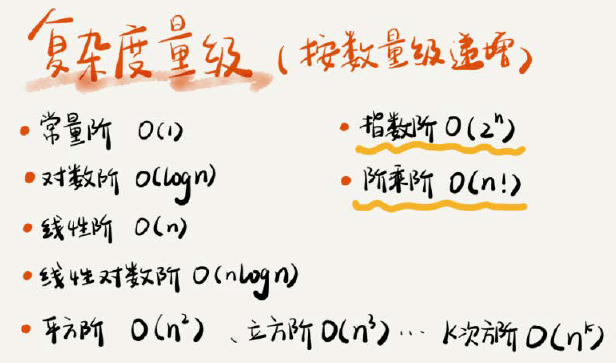 复杂度量级（按数量级递增）
• 常量阶 O(1)
• 对数阶 O(logn)
• 线性阶 O(n)
• 线性对数阶 O(nlogn)
• 平方阶 O(n²)、立方阶 O(n³) ··· k次方阶 O(nᵏ)
• 指数阶 O(2ⁿ)
• 阶乘阶 O(n!)